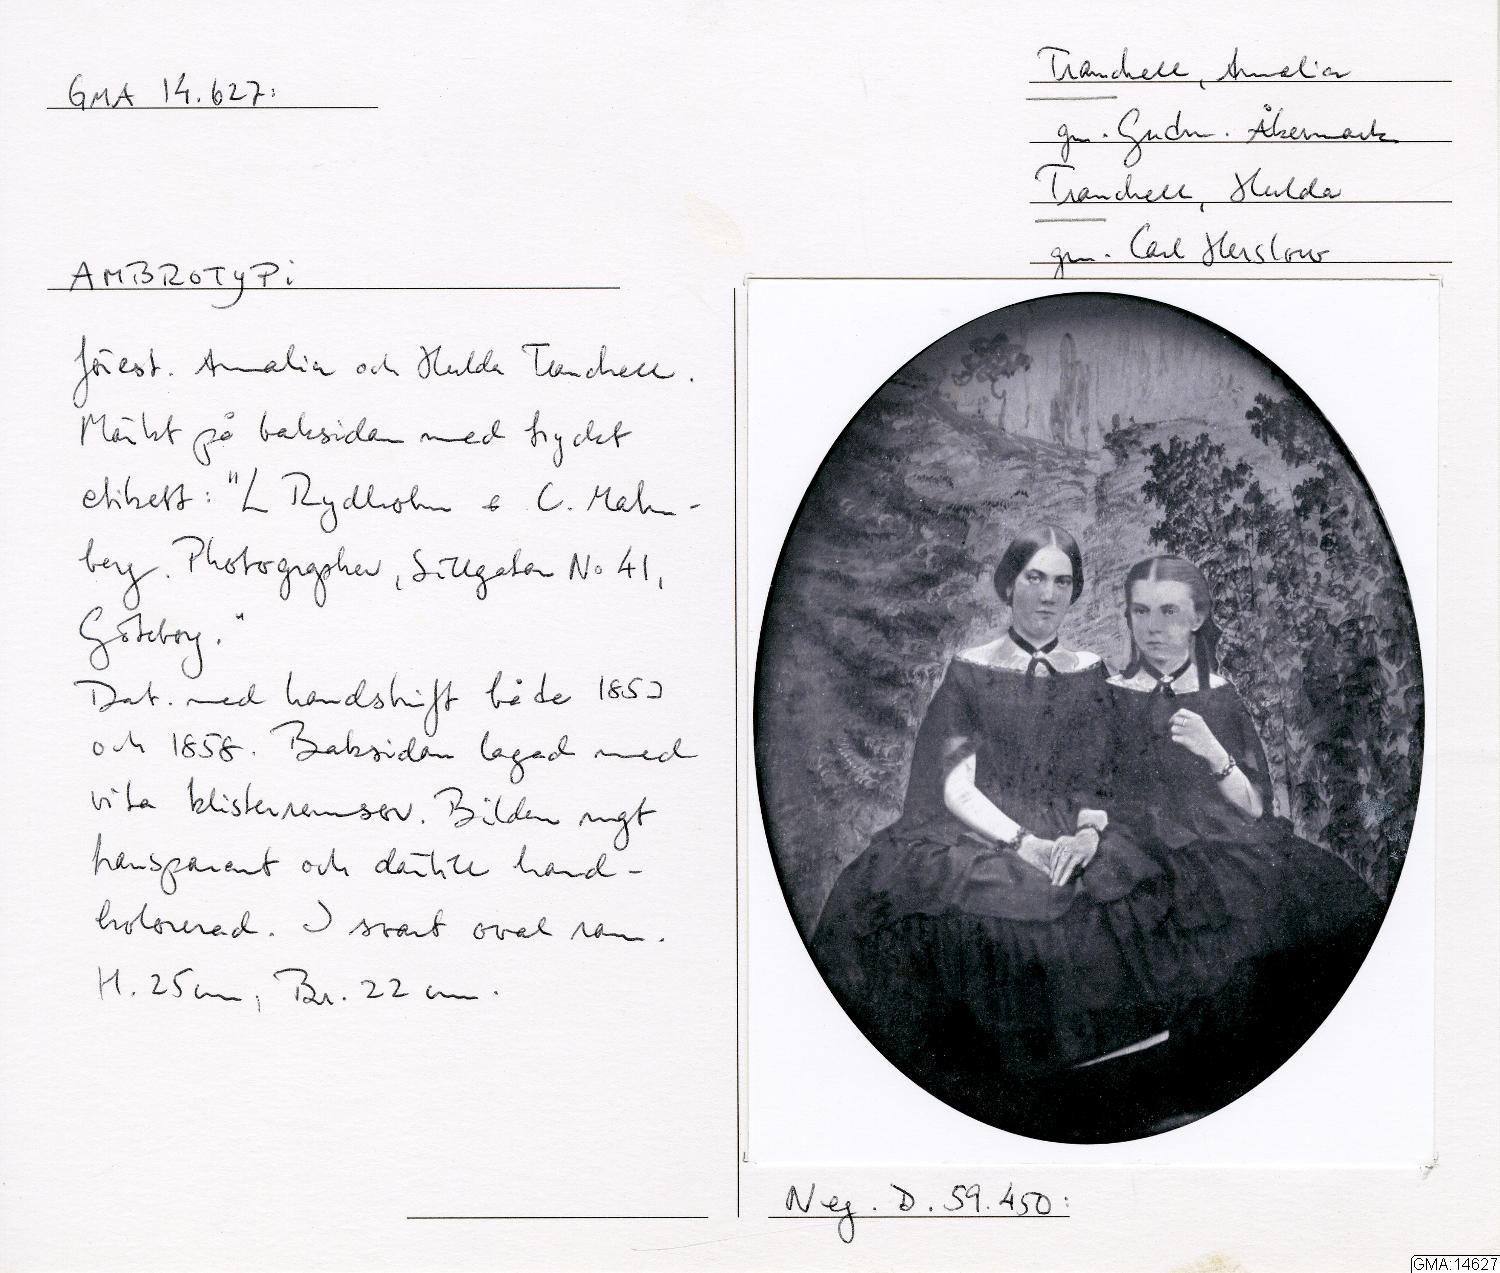 GMA 14.627:
Tranchell, Amalia
gm. Gudm. Åkermark
Tranchell, Hulda
gm. Carl Herslow
AMBROTYPI
förest. Amalia och Hulda Tranchell.
Märkt på baksidan med tryckt
etikett: "L Rydholm & C. Malm-
berg. Photographer, Sillgatan No 41,
Göteborg."
Dat. med handskrift både
och 1858. Baksidan lagad med
vita klisterremsor. Bilden ngt
transparent och därtill hand-
kolorerad. I svart oval ram.
H. 25 cm, Br. 22 cm.
Neg. D. 59.450:
GMA:14627